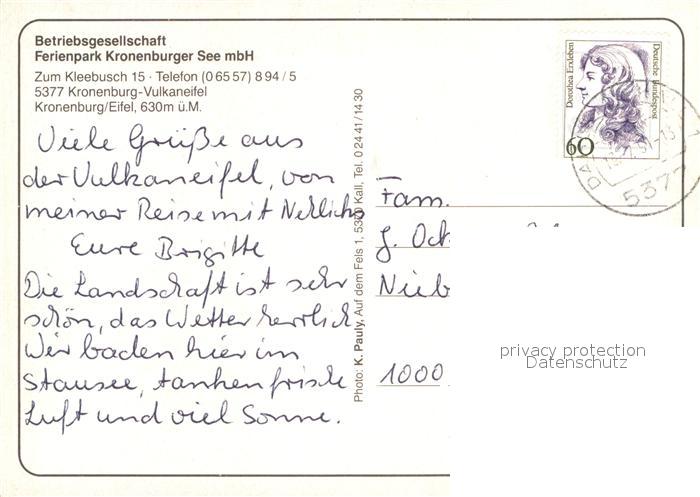 Betriebsgesellschaft
Ferienpark Kronenburger See mbH
Zum Kleebusch 15 · Telefon (0 65 57) 8 94 / 5
5377 Kronenburg-Vulkaneifel
Kronenburg/Eifel, 630m ü.M.
Viele Grüße aus
der Vulkaneifel, von
meiner Reise mit
Eure Brigitte
Die Landschaft ist sehr
schön, das Wetter herrlich.
Wir baden hier im
Stausee, tanken frische
Luft und viel Sonne.
Photo: K. Pauly, Auf dem Fels 1, 5370 Kall, Tel. 0 24 41 / 14 30
Dorothea Erxleben
Deutsche Bundespost
60
5377
Fam.
J. Ock
Nieb
1000
privacy protection
Datenschutz